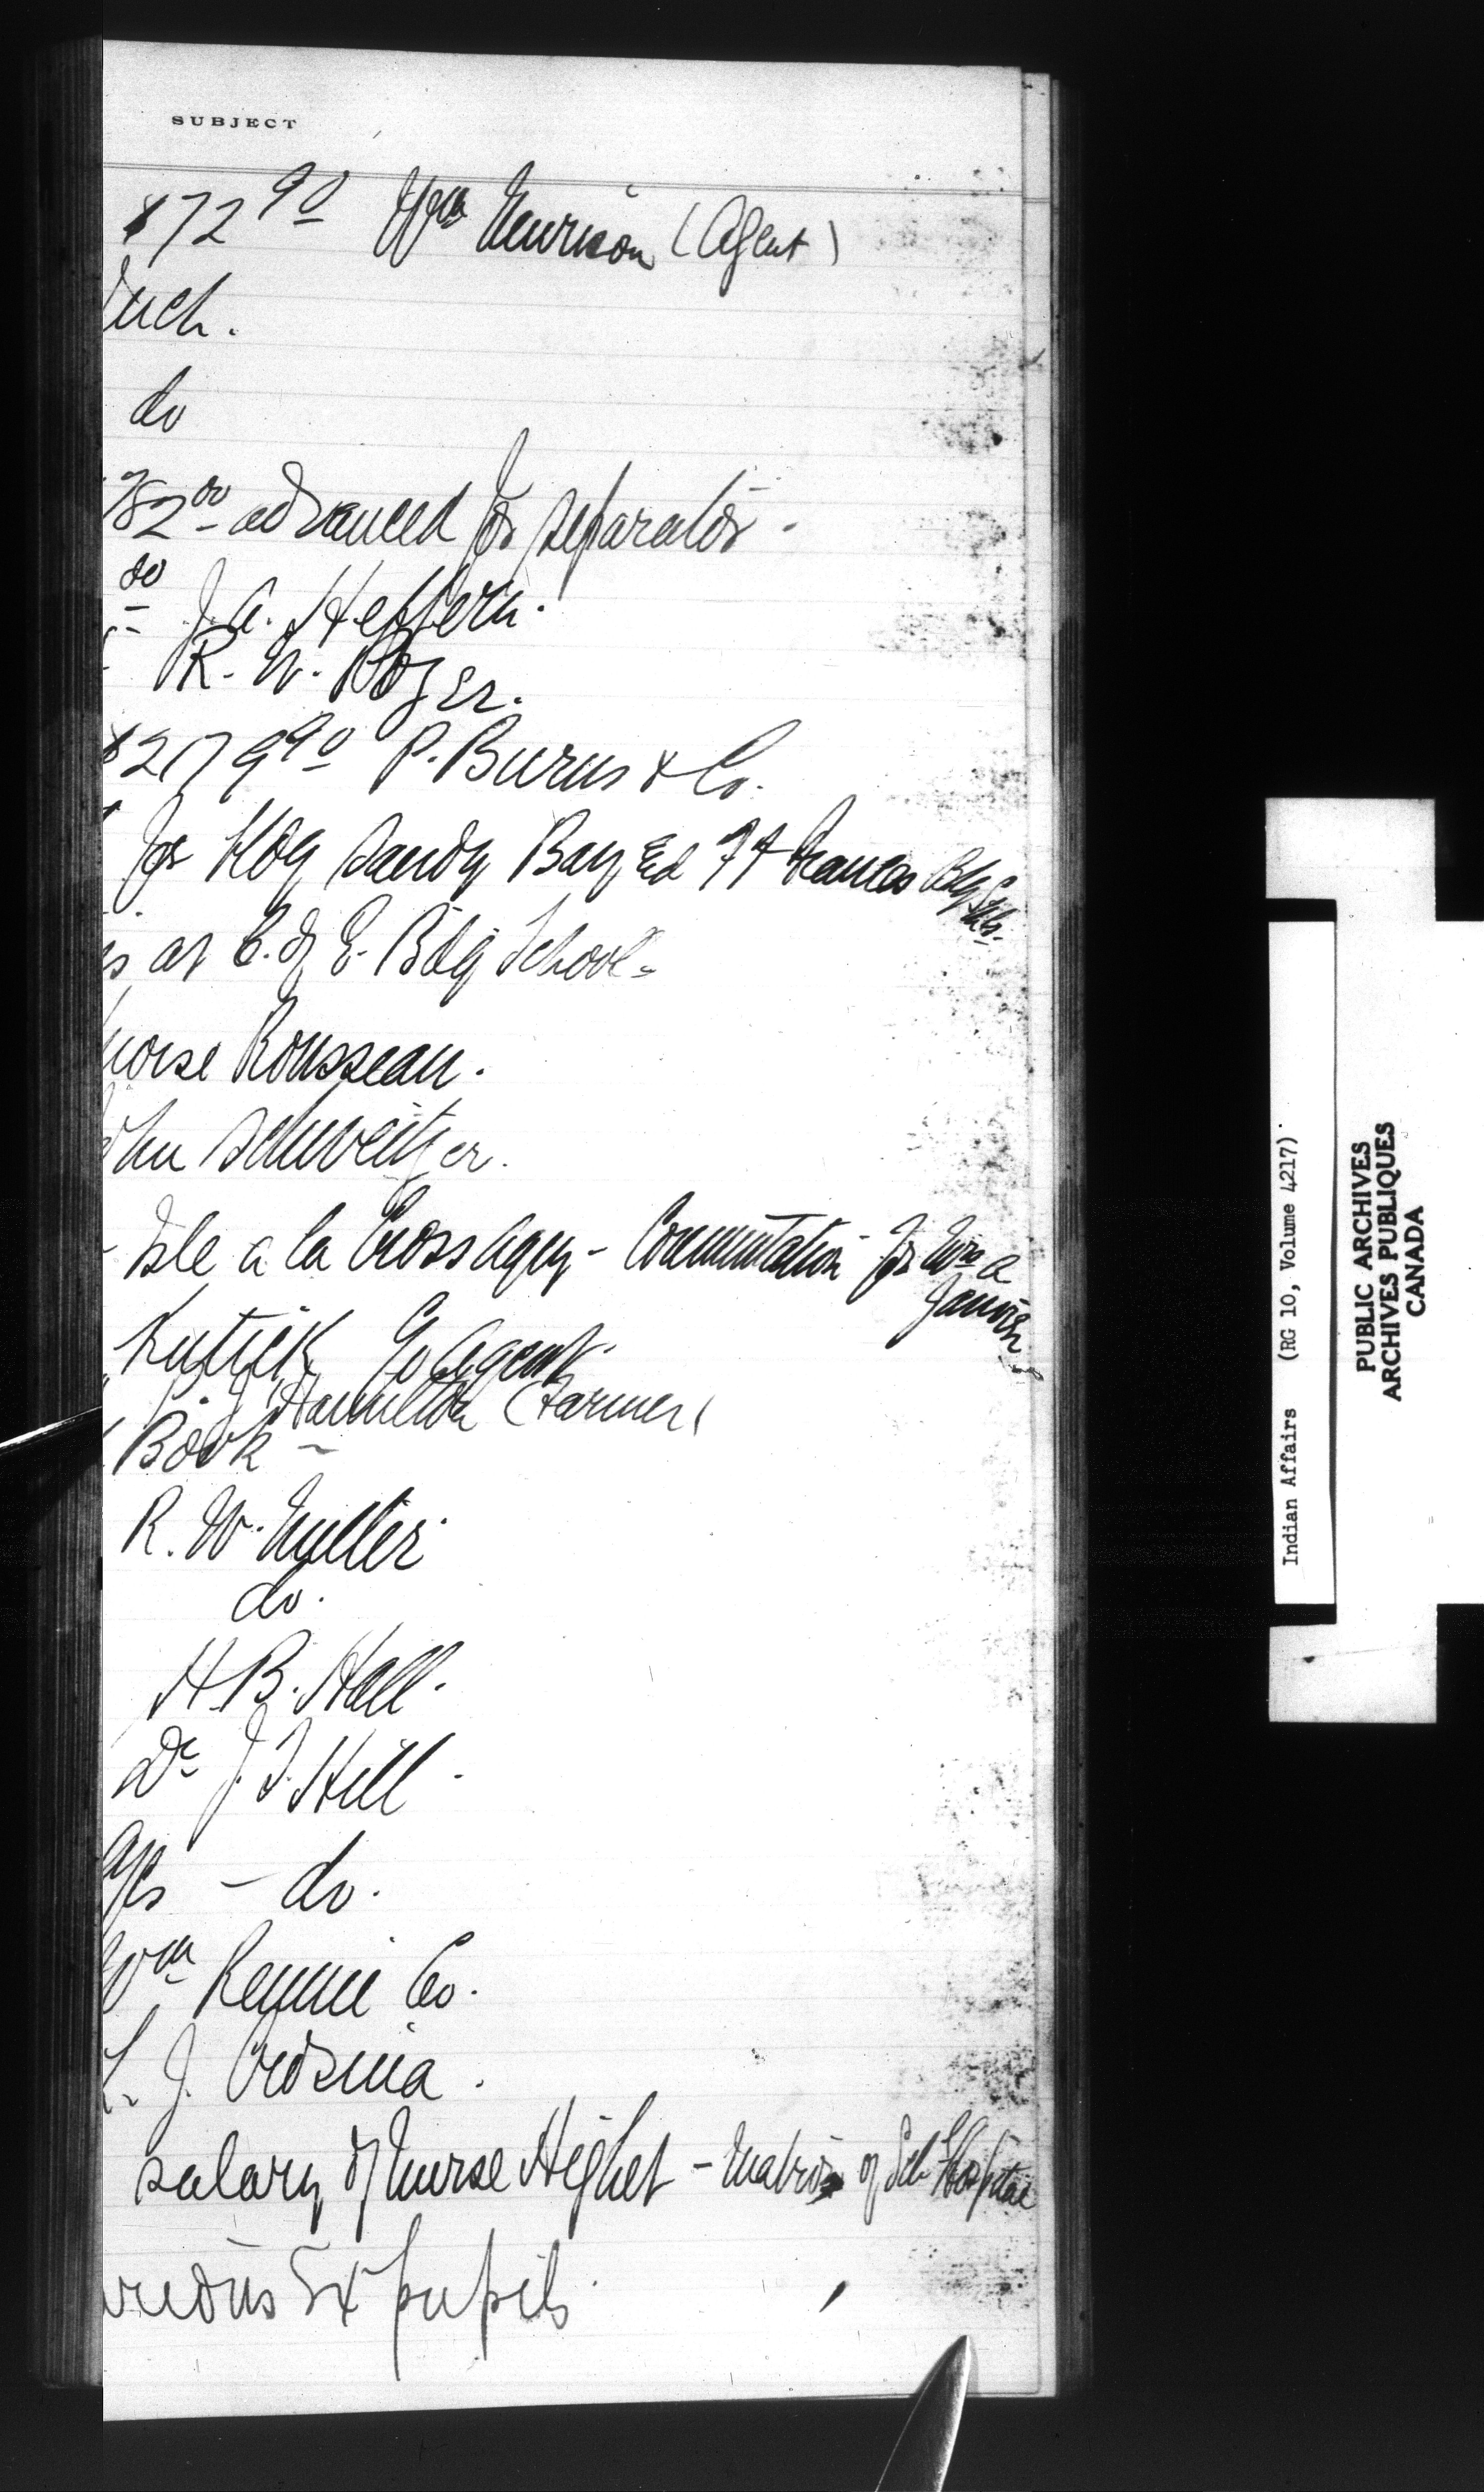 SUBJECT
$72 90 Wm Murison (Agent)
uch.
do
782 00 advanced for separator -
80 J. A. Heffern.
R. W. Roger.
$217 990 P. Burns & Co.
for Hog Sandy Bay and Ft Frances Bdg Schs.
s at C. of E. Bdg School -
moise Rousseau.
ohn Schweitzer.
- Isle a la Crosse Agcy - Commutation for Wm a
Janvier
Agent
P. J Hamilton (Farmer)
Book -
R. W.
do.
H. B. Hall.
Dr J. J. Hill -
ages - do.
Wm Rennie Co.
L. J.
salary of Nurse Highet - Matron of Sch Hospital
various Ex pupils
Indian Affairs (RG 10, Volume 4217)
PUBLIC ARCHIVES
ARCHIVES PUBLIQUES
CANADA